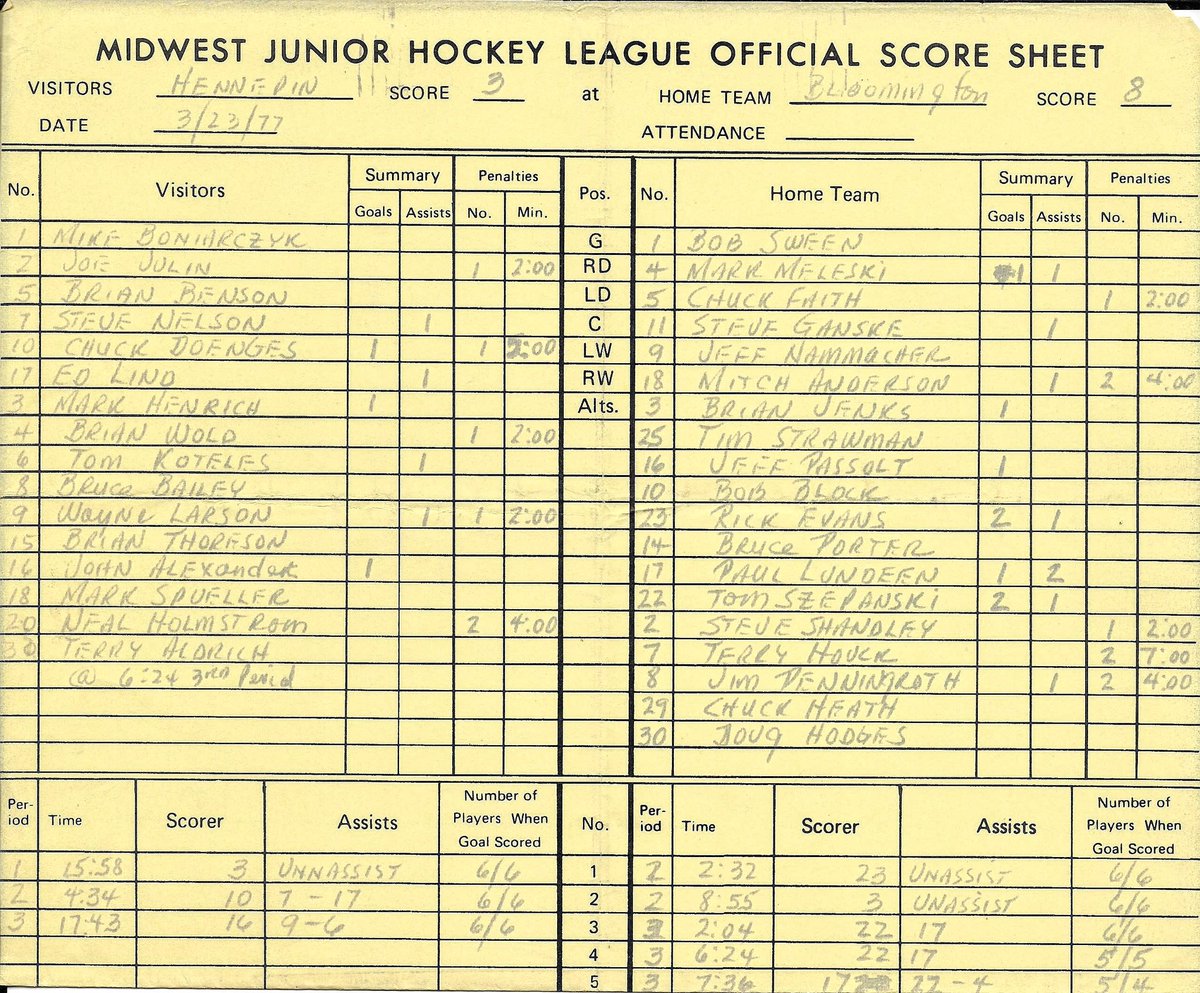 MIDWEST JUNIOR HOCKEY LEAGUE OFFICIAL SCORE SHEET
VISITORS HENNEPIN SCORE 3 at HOME TEAM Bloomington SCORE 8
DATE 3/23/77 ATTENDANCE
No. Visitors Summary Penalties Pos. No. Home Team Summary Penalties
Goals Assists No. Min. Goals Assists No. Min.
1 MIKE BONIARCZYK G 1 BOB SWEEN
2 JOE JULIN 1 2:00 RD 4 MARK MELESKI 1 1
5 BRIAN BENSON LD 5 CHUCK FAITH 1 2:00
7 STEVE NELSON 1 C 11 STEVE GANSKE 1
10 CHUCK DOENGES 1 1 2:00 LW 9 JEFF NAMMACHER
17 ED LIND 1 RW 18 MITCH ANDERSON 1 2 4:00
3 MARK HENRICH 1 Alts. 3 BRIAN JENKS 1
4 BRIAN WOLD 1 2:00 25 TIM STRAWMAN
6 TOM KOTELES 1 16 JEFF PASSOLT 1
8 BRUCE BAILEY 10 BOB BLOCK
9 WAYNE LARSON 1 1 2:00 23 RICK EVANS 2 1
15 BRIAN THORESON 14 BRUCE PORTER
16 JOHN ALEXander 1 17 PAUL LUNDEEN 1 2
18 MARK SPUELLER 22 TOM SZEPANSKI 2 1
20 NEAL HOLMSTROM 2 4:00 2 STEVE SHANDLEY 1 2:00
30 TERRY ALDRICH 7 TERRY HOUCK 2 7:00
@ 6:24 3RD Period 8 JIM PENNINGROTH 1 2 4:00
29 CHUCK HEATH
30 DOUG HODGES
Period Time Scorer Assists Number of Players When Goal Scored No. Period Time Scorer Assists Number of Players When Goal Scored
1 15:58 3 UNNASSIST 6/6 1 2 2:32 23 UNASSIST 6/6
2 4:34 10 7-17 6/6 2 2 8:55 3 UNASSIST 6/6
3 17:43 16 9-6 6/6 3 3 2:04 22 17 6/6
4 3 6:24 22 17 5/5
5 3 7:36 17 22-4 5/4